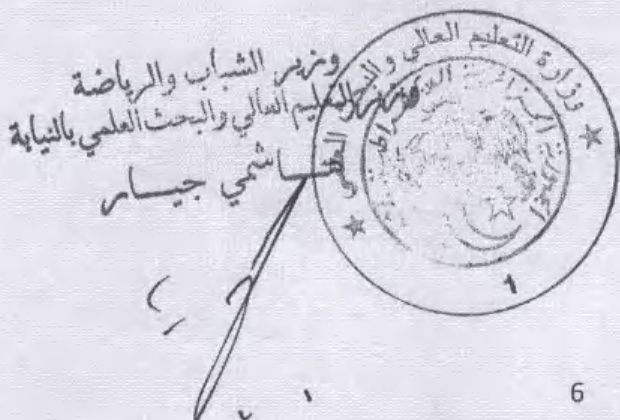 وزير الشباب والرياضة
وزير التعليم العالي والبحث العلمي بالنيابة
هاشمي جيار
وزارة التعليم العالي والبحث العلمي
1
6